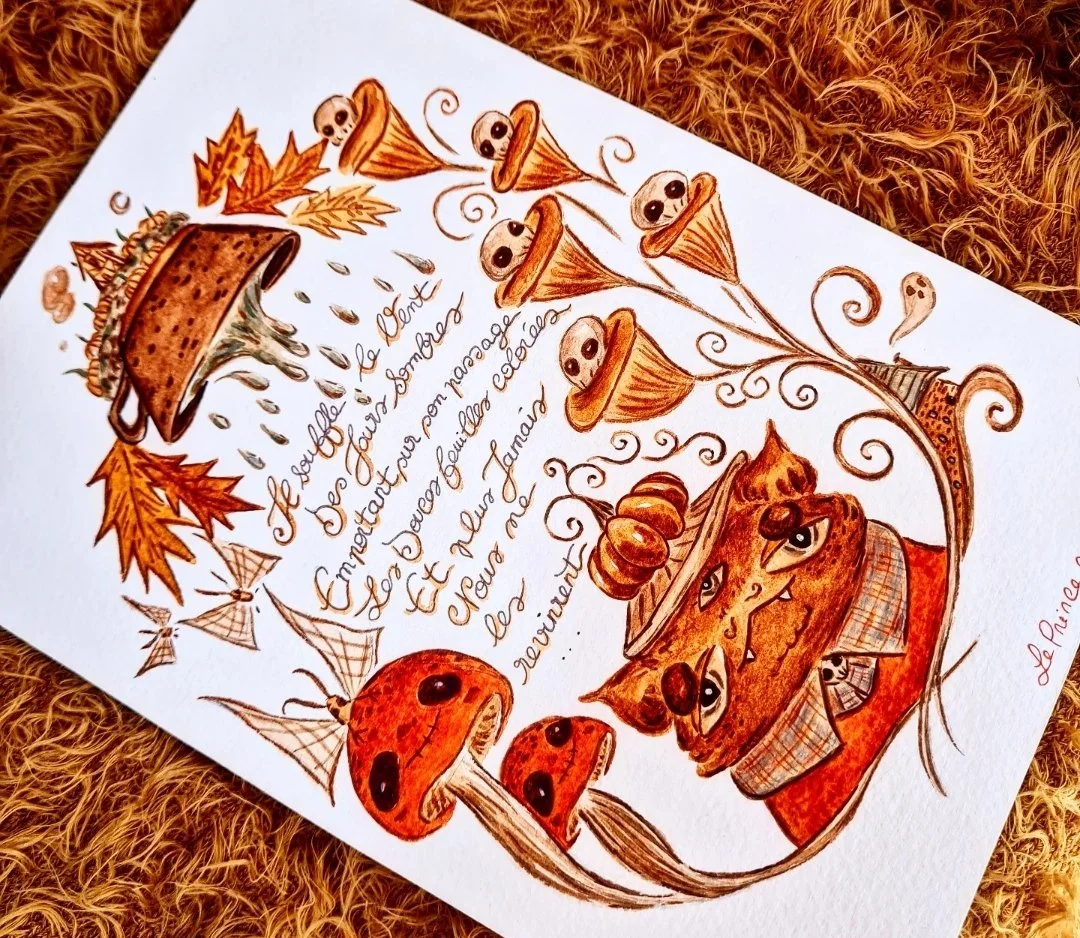 Il souffle, le Vent
Des Jours Sombres
Emportant, sur son passage
Les Douces feuilles colorées
Et plus Jamais
Nous ne
les
revinrent...
Le Prince